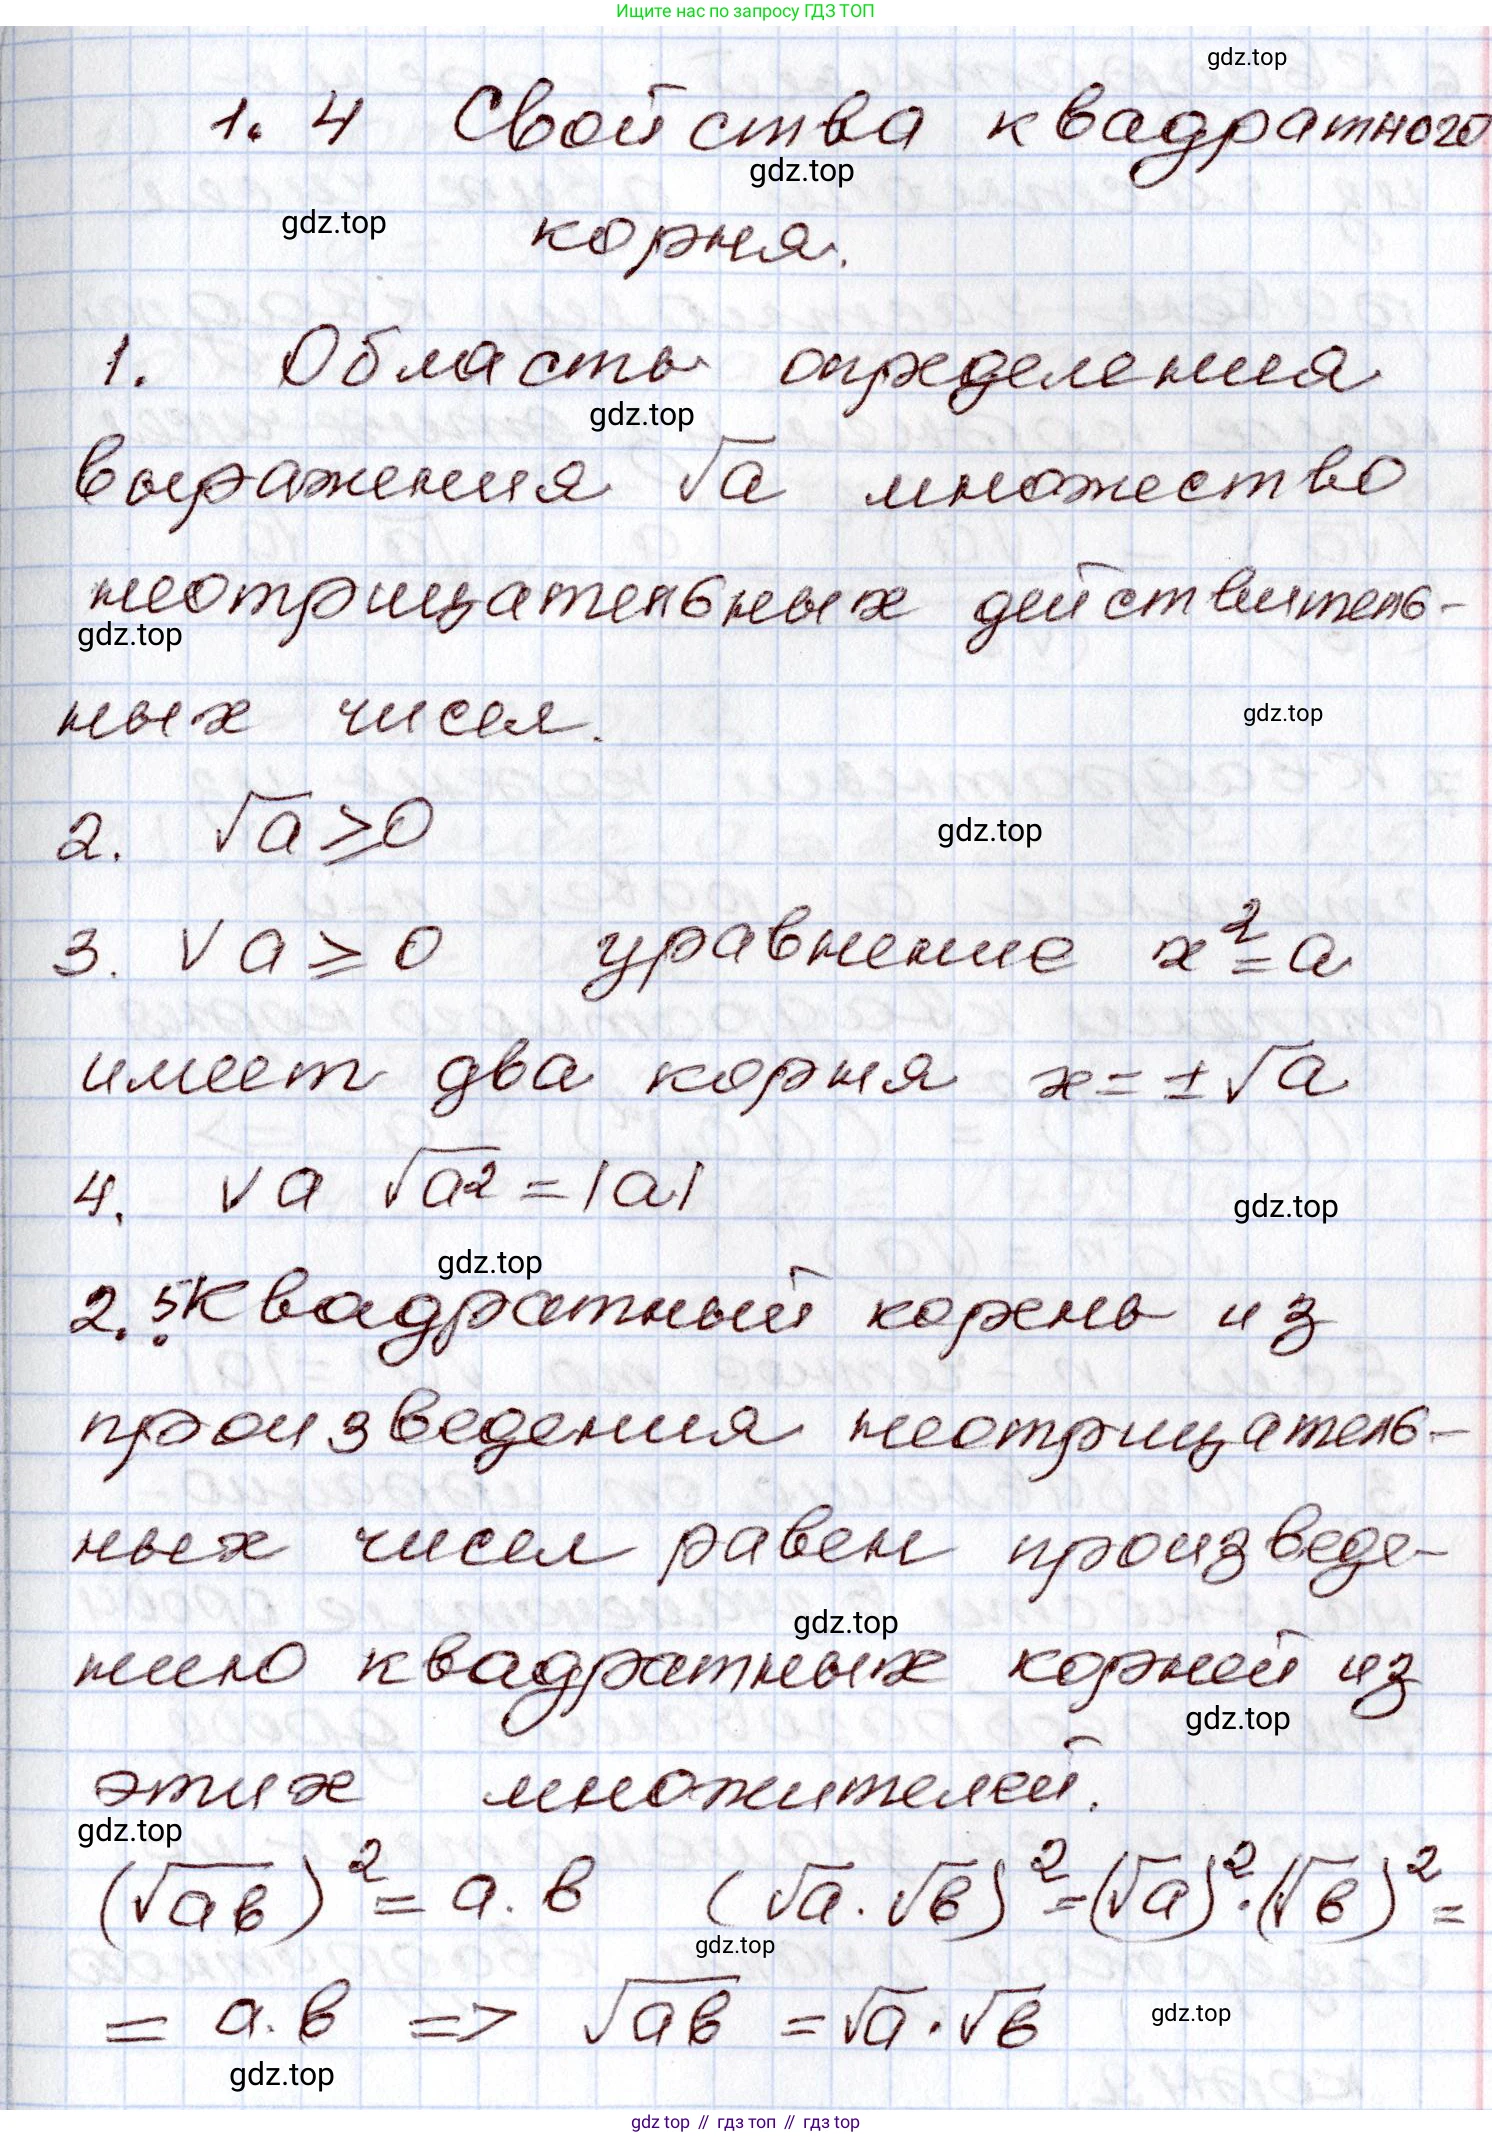 Ищите нас по запросу ГДЗ ТОП
gdz.top
1.4 Свойства квадратного
gdz.top
gdz.top
корня.
1. Область определения
gdz.top
выражения √a множество
неотрицательных действитель-
gdz.top
ных чисел.
gdz.top
2. √a ≥ 0
gdz.top
3. ∀ a ≥ 0 уравнение x² = a
имеет два корня x = ± √a
4. ∀ a √a² = |a|
gdz.top
gdz.top
2. 5. Квадратный корень из
произведения неотрицатель-
ных чисел равен произведе-
gdz.top
нию квадратных корней из
gdz.top
этих множителей.
gdz.top
(√ав)² = а·в (√а·√в)² = (√а)²·(√в)² =
gdz.top
= а·в => √ав = √а·√в
gdz.top
gdz.top
gdz top // гдз топ // gdz top